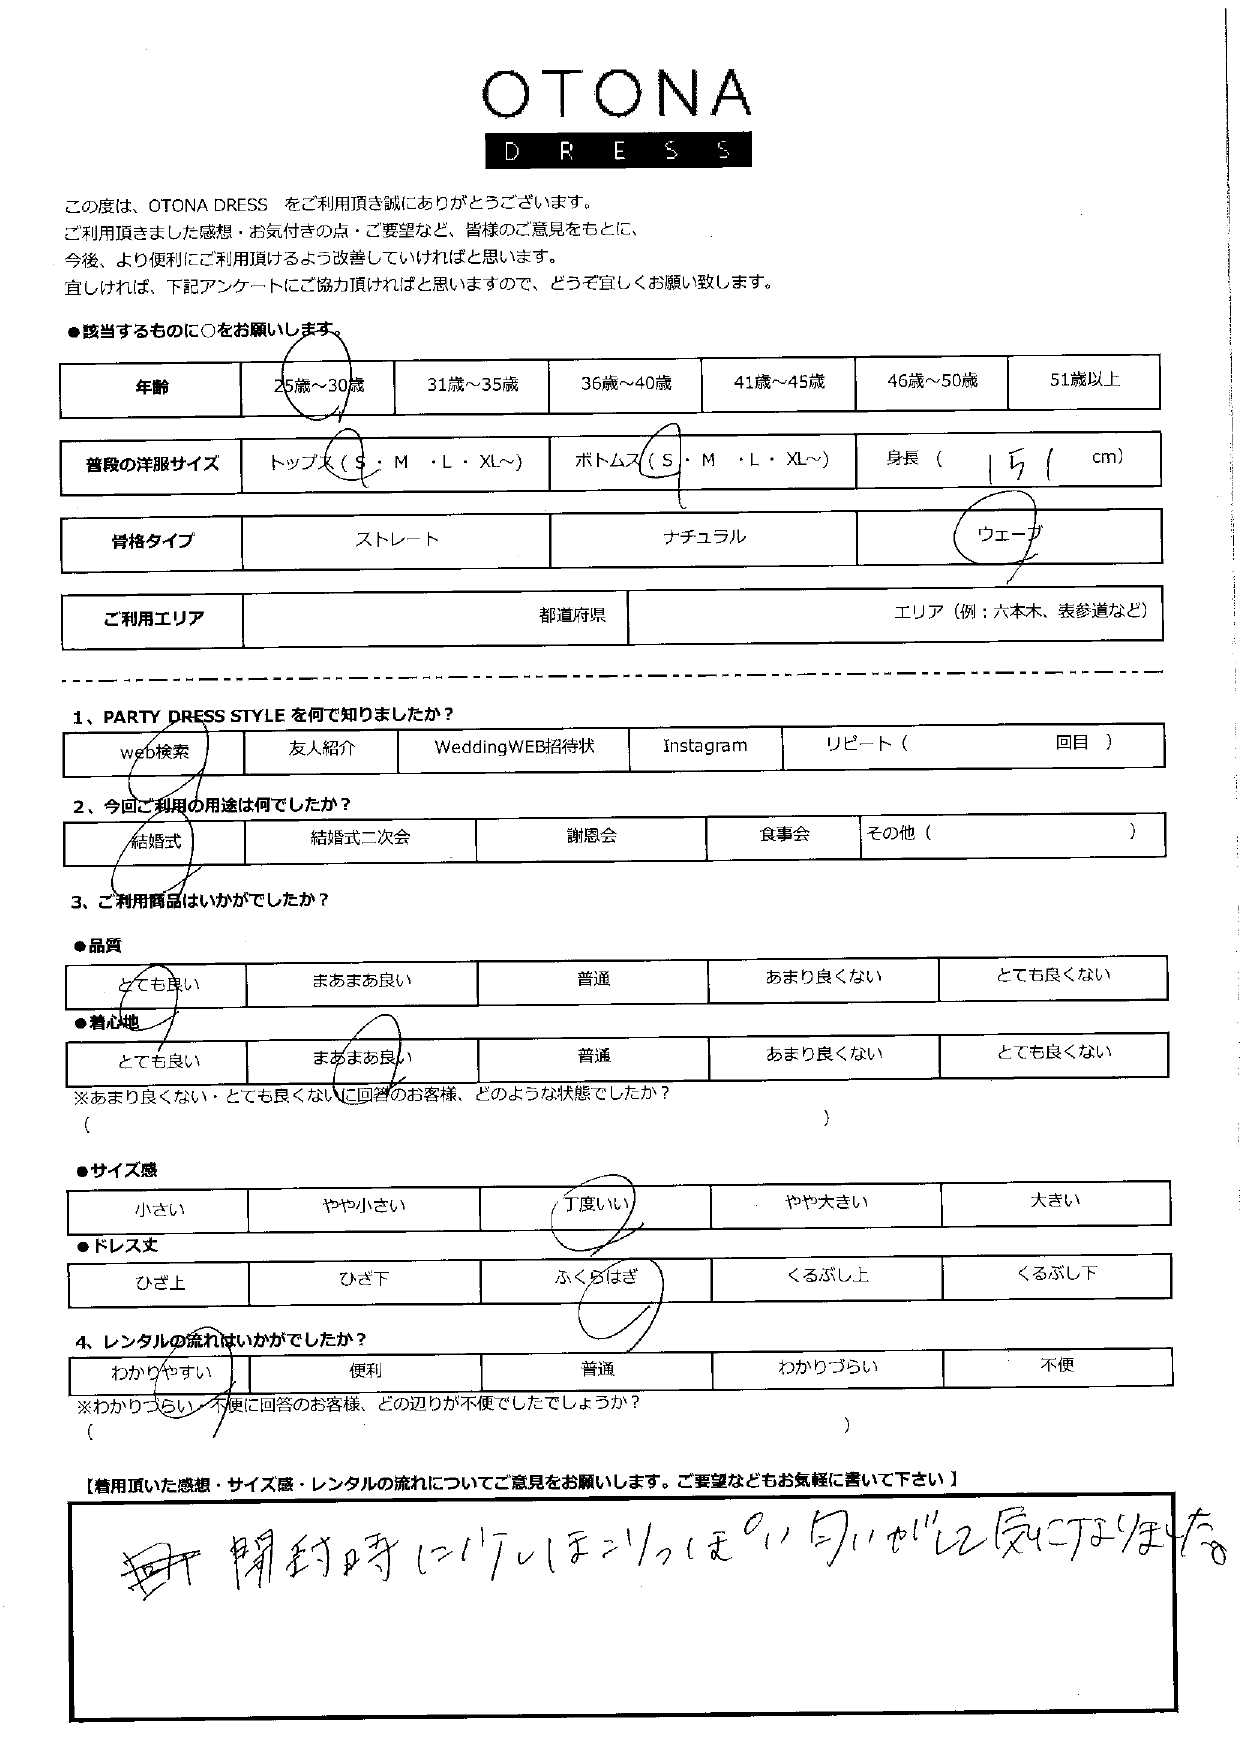 OTONA
DRESS
この度は、OTONA DRESS　をご利用頂き誠にありがとうございます。
ご利用頂きました感想・お気付きの点・ご要望など、皆様のご意見をもとに、
今後、より便利にご利用頂けるよう改善していければと思います。
宜しければ、下記アンケートにご協力頂ければと思いますので、どうぞ宜しくお願い致します。
●該当するものに○をお願いします。
年齢 25歳～30歳 31歳～35歳 36歳～40歳 41歳～45歳 46歳～50歳 51歳以上
普段の洋服サイズ トップス（ S ・ M ・L ・ XL～） ボトムス（ S ・ M ・L ・ XL～） 身長（ 151 cm）
骨格タイプ ストレート ナチュラル ウェーブ
ご利用エリア 都道府県 エリア（例：六本木、表参道など）
1、PARTY DRESS STYLE を何で知りましたか？
web検索 友人紹介 WeddingWEB招待状 Instagram リピート（ 回目 ）
2、今回ご利用の用途は何でしたか？
結婚式 結婚式二次会 謝恩会 食事会 その他（ ）
3、ご利用商品はいかがでしたか？
●品質
とても良い まあまあ良い 普通 あまり良くない とても良くない
●着心地
とても良い まあまあ良い 普通 あまり良くない とても良くない
※あまり良くない・とても良くないに回答のお客様、どのような状態でしたか？
（ ）
●サイズ感
小さい やや小さい 丁度いい やや大きい 大きい
●ドレス丈
ひざ上 ひざ下 ふくらはぎ くるぶし上 くるぶし下
4、レンタルの流れはいかがでしたか？
わかりやすい 便利 普通 わかりづらい 不便
※わかりづらい・不便に回答のお客様、どの辺りが不便でしたでしょうか？
（ ）
【着用頂いた感想・サイズ感・レンタルの流れについてご意見をお願いします。ご要望などもお気軽に書いて下さい 】
開封時に少しほこりっぽい匂いがして気になりました。